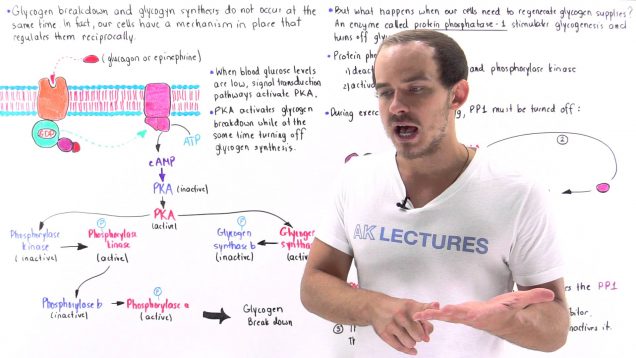 • Glycogen breakdown and glycogyn synthesis do not occur at the
same time. In fact, our cells have a mechanism in place that
regulates them reciprocally.
(glucagon or epinephrine)
GDP
ATP
cAMP
PKA (inactive)
PKA
(active)
• When blood glucose levels
are low, signal transduction
pathways activate PKA.
• PKA activates glycogen
breakdown while at the
same time turning off
glycogen synthesis.
Phosphorylase
kinase
(inactive)
P
Phosphorylase
kinase
(active)
P
Glycogen
synthase b
(inactive)
Glycogen
(acti
Phosphorylase b
(inactive)
P
Phosphorylase a
(active)
Glycogen
Breakdown
• But what happens when our cells need to regenerate glycogen supplies?
An enzyme called protein phosphatase-1 stimulates glycogenesis and
turns off
• Protein
1)
and phosphorylase kinase
2)
• During
PP1 must be turned off:
2
the PP1
it.
3
AK LECTURES